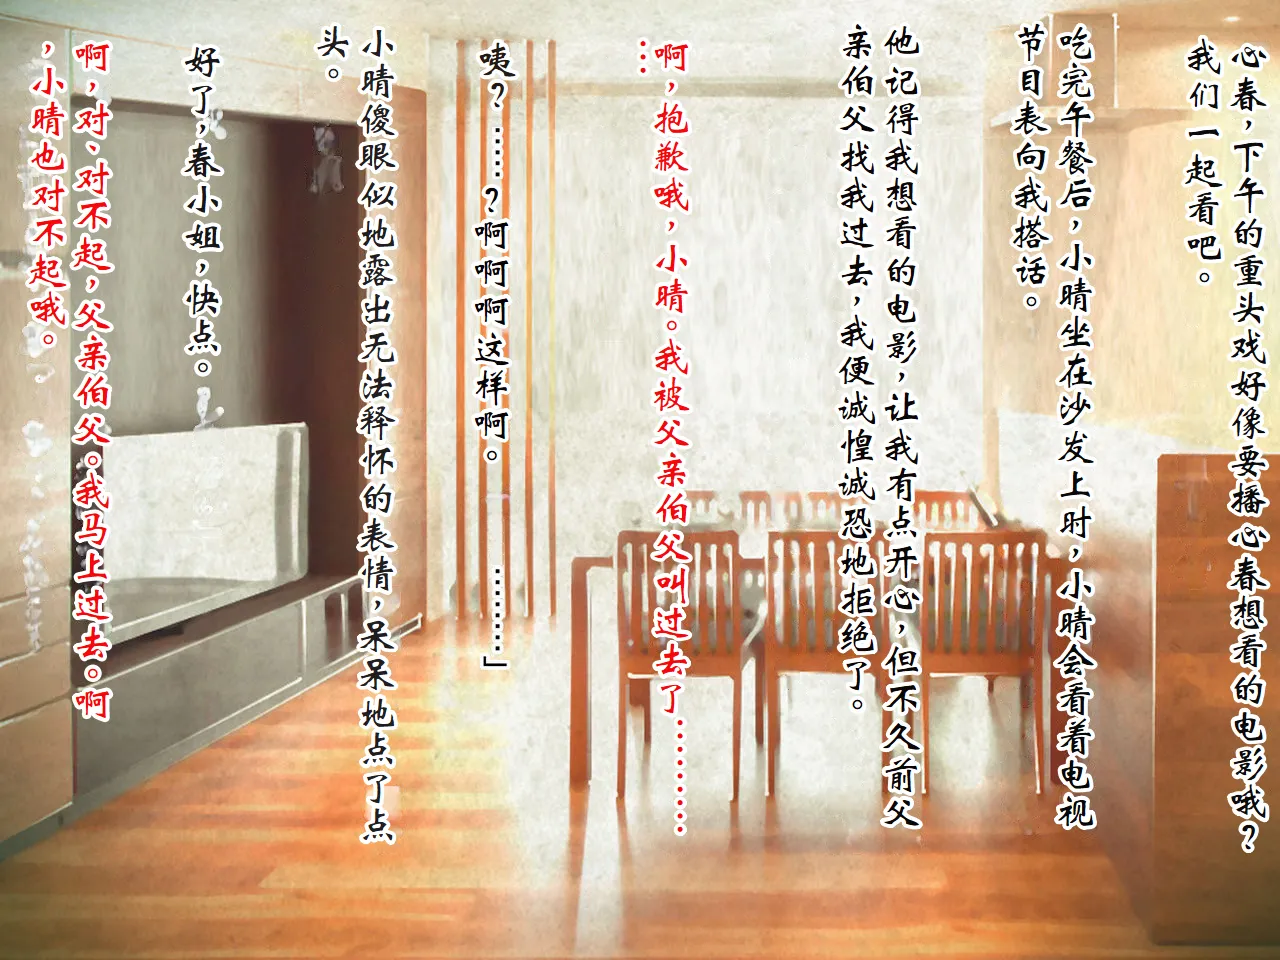 心春，下午的重头戏好像要播心春想看的电影哦？
我们一起看吧。
吃完午餐后，小晴坐在沙发上时，小晴会看着电视
节目表向我搭话。
他记得我想看的电影，让我有点开心，但不久前父
亲伯父找我过去，我便诚惶诚恐地拒绝了。
啊，抱歉哦，小晴。我被父亲伯父叫过去了………
…
咦？……？啊啊啊这样啊。　　………」
小晴傻眼似地露出无法释怀的表情，呆呆地点了点
头。
好了，春小姐，快点。
啊，对、对不起，父亲伯父。我马上过去。啊
，小晴也对不起哦。